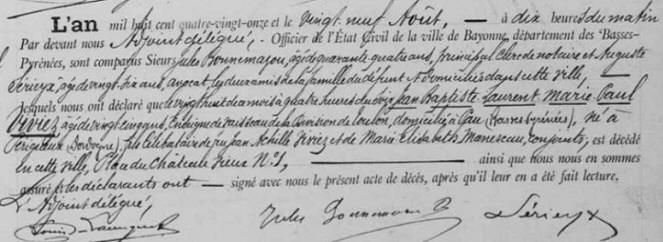 L'an mil huit cent quatre-vingt-onze et le vingt neuf Août, — à dix heures du matin
Par devant nous Adjoint délégué, Officier de l'État Civil de la ville de Bayonne, département des Basses-
Pyrénées, sont comparus Sieurs Jules Bonnemazou, âgé de quarante quatre ans, principal Clerc de notaire et Auguste
Sérieyx, âgé de vingt six ans, avocat, les deux amis de la famille du défunt domiciliés dans cette ville, —
lesquels nous ont déclaré que le vingt huit de ce mois à quatre heures du soir Jean Baptiste Laurent Marie Paul
Viviez âgé de vingt cinq ans, Enseigne de vaisseau de la Division de Toulon, domicilié à Pau (Basses Pyrénées), né à
Périgueux (Dordogne), fils célibataire de Jean Achille Viviez et de Marie Elisabeth Manescau, conjoints, est décédé
en cette ville, Place du Château Vieux N° 1, — ainsi que nous nous en sommes
assuré & les déclarants ont — signé avec nous le présent acte de décès, après qu'il leur en a été fait lecture.
L'Adjoint délégué,
Jules Bonnemazou Sérieyx